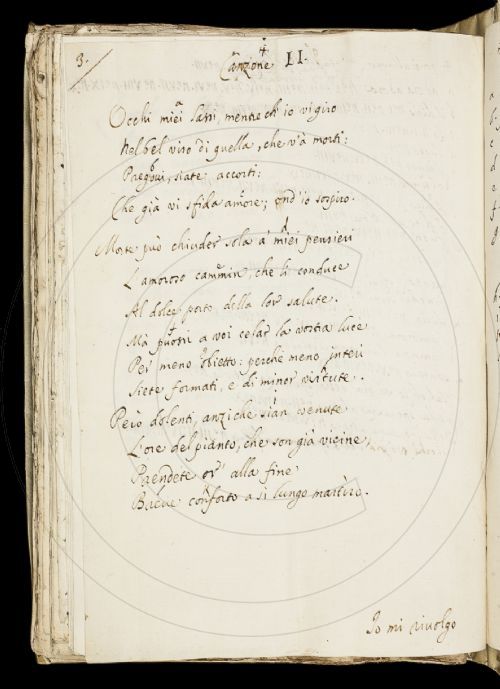 3.
Canzone II.
Occhi miei lassi, mentre ch'io vi giro
Nel bel viso di quella, che v'à morti:
Pregovi, siate accorti:
Che già vi sfida amore; ond'io sospiro.
Morte può chiuder sola a' miei pensieri
L'amoroso cammin, che li conduce
Al dolce porto della lor salute.
Mà puossi a voi celar la vostra luce
Per meno obietto: perché meno interi
Siete formati, e di minor virtute.
Però dolenti, anzi che sian venute
L'ore del pianto, che son già vicine,
Prendete or' alla fine
Breve conforto a sì lungo martìro.
Io mi rivolgo